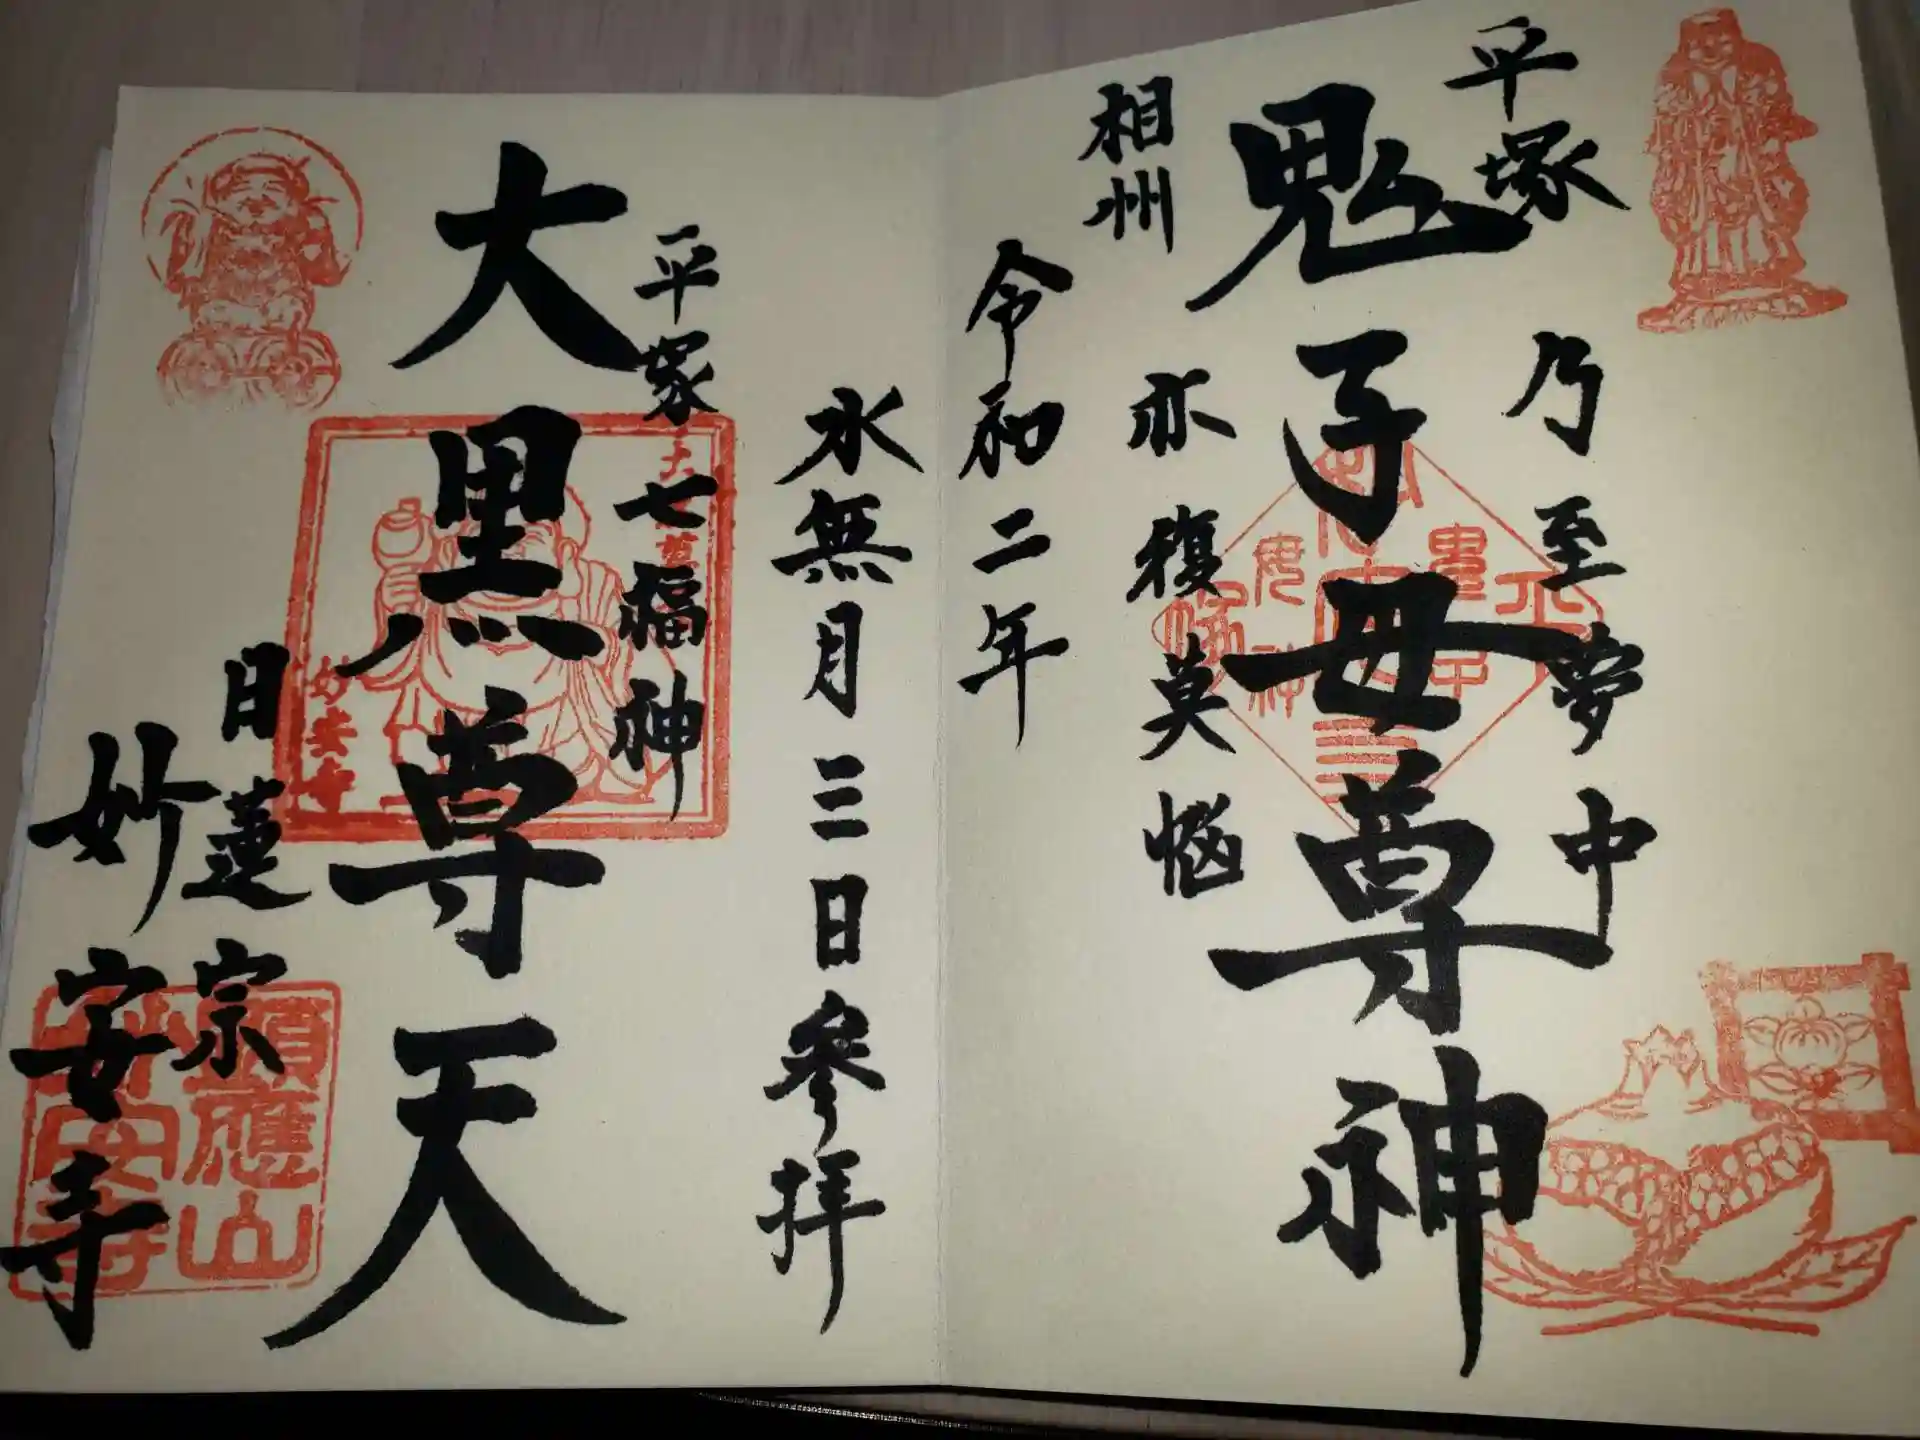 平塚
乃至夢中
鬼子母尊神
相州
亦復莫悩
令和二年
水無月三日参拝
平塚七福神
大黒尊天
日蓮宗
妙安寺
妙安寺
願應山
妙安寺